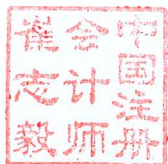 中国注册
会计师
崔志毅